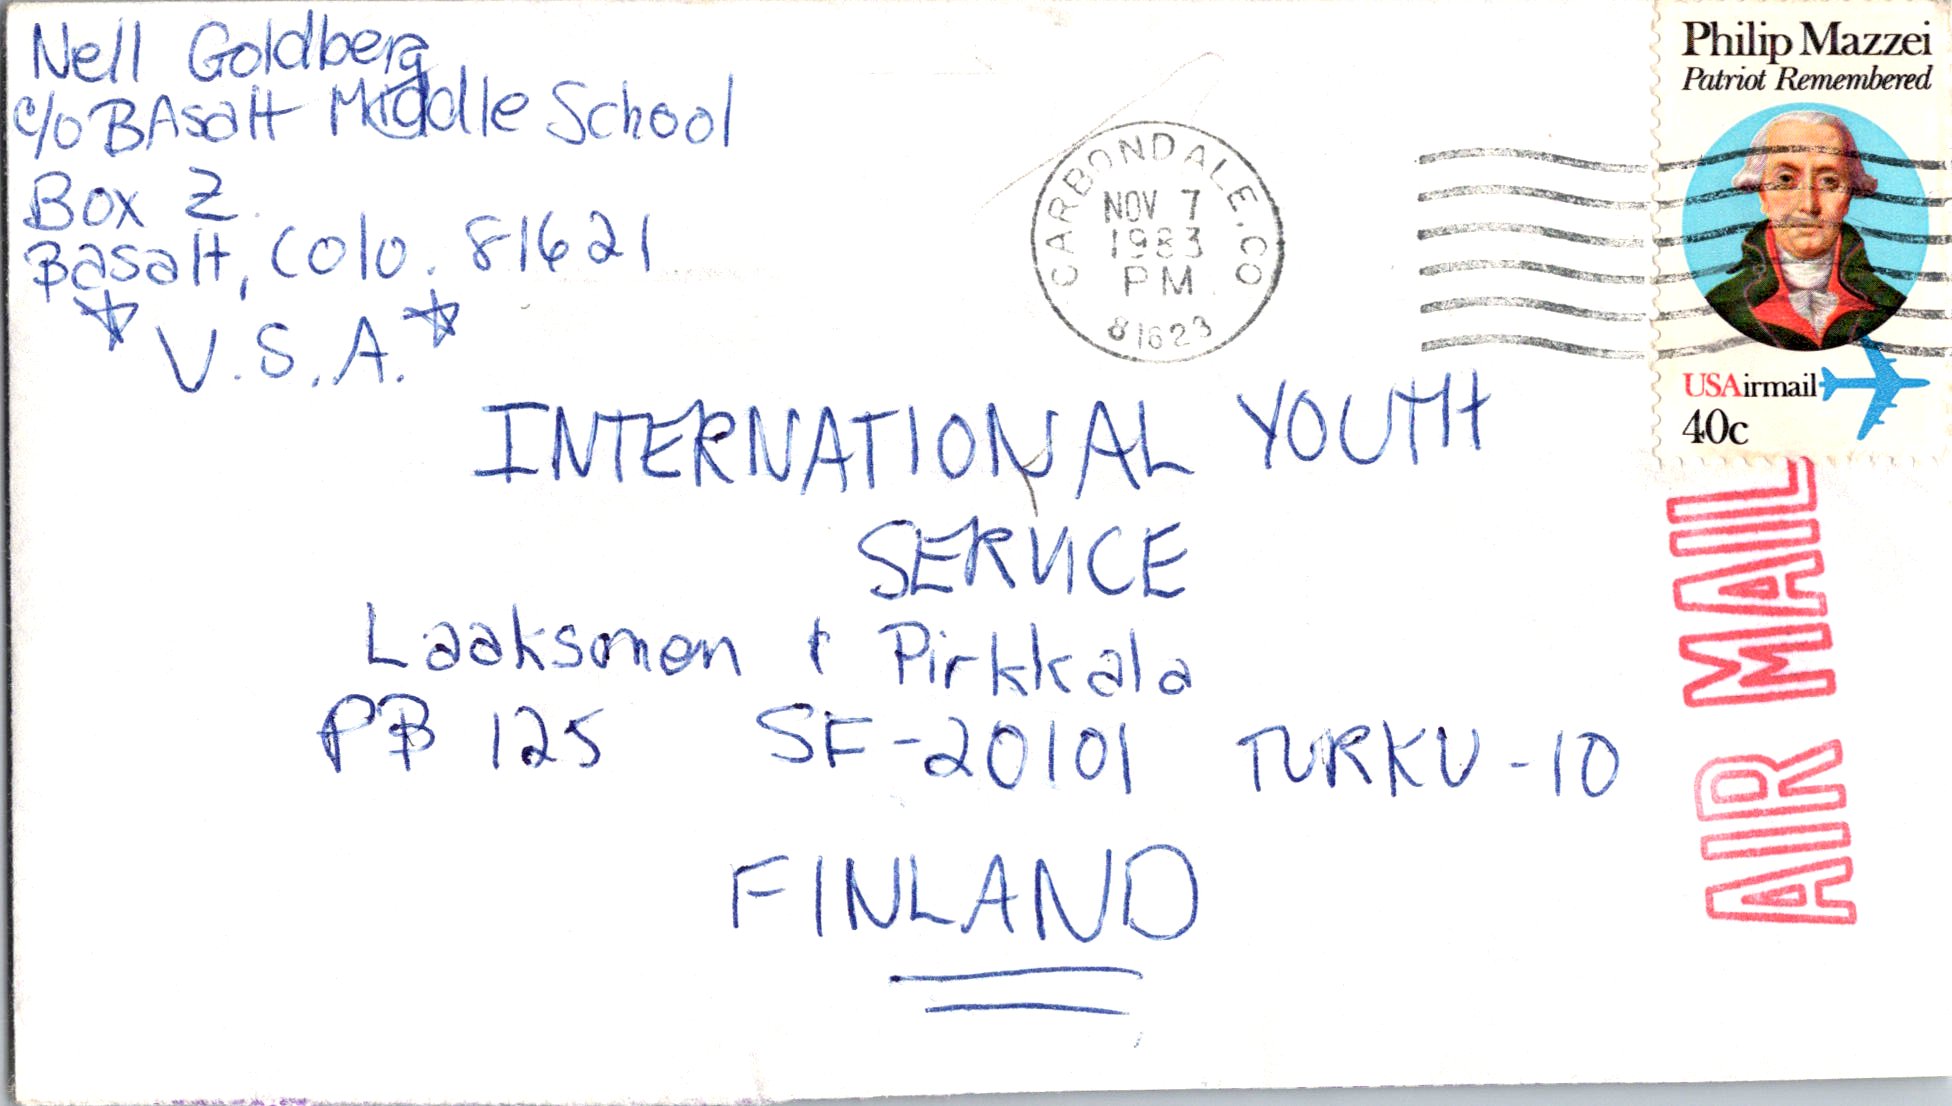 Nell Goldberg
c/o BAsalt Middle School
Box Z
Basalt, Colo. 81621
U.S.A.
CARBONDALE, CO
NOV 7
1983
PM
81623
Philip Mazzei
Patriot Remembered
USAirmail
40c
AIR MAIL
INTERNATIONAL YOUTH
SERVICE
Laaksonen & Pirkkala
PB 125 SF-20101 TURKU-10
FINLAND